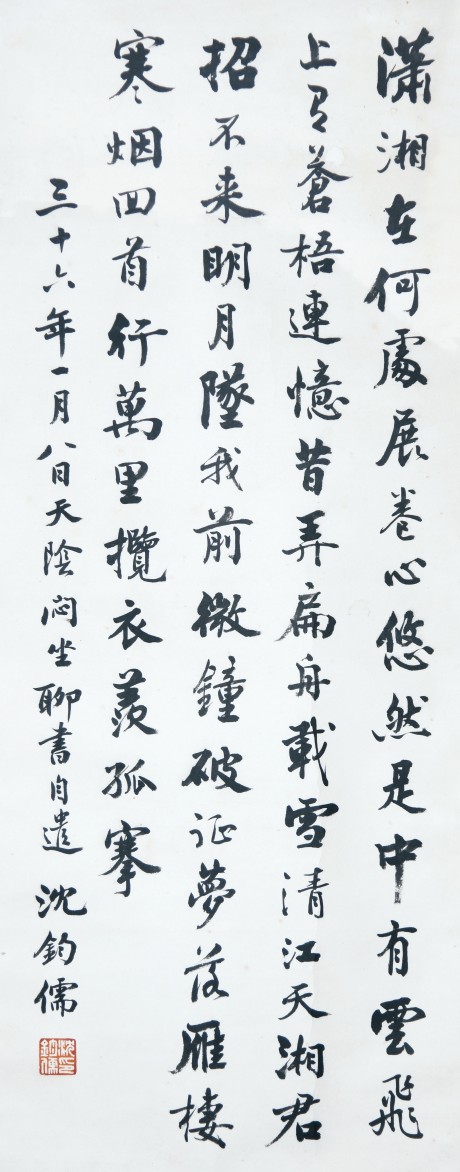 瀟湘在何處展卷心悠然是中有雲飛
上与蒼梧連憶昔弄扁舟載雪清江天湘君
招不来明月墜我前微鐘破征夢落雁棲
寒烟回首行萬里攬衣羨孤搴
三十六年一月八日天陰悶坐聊書自遣 沈鈞儒
沈印鈞儒